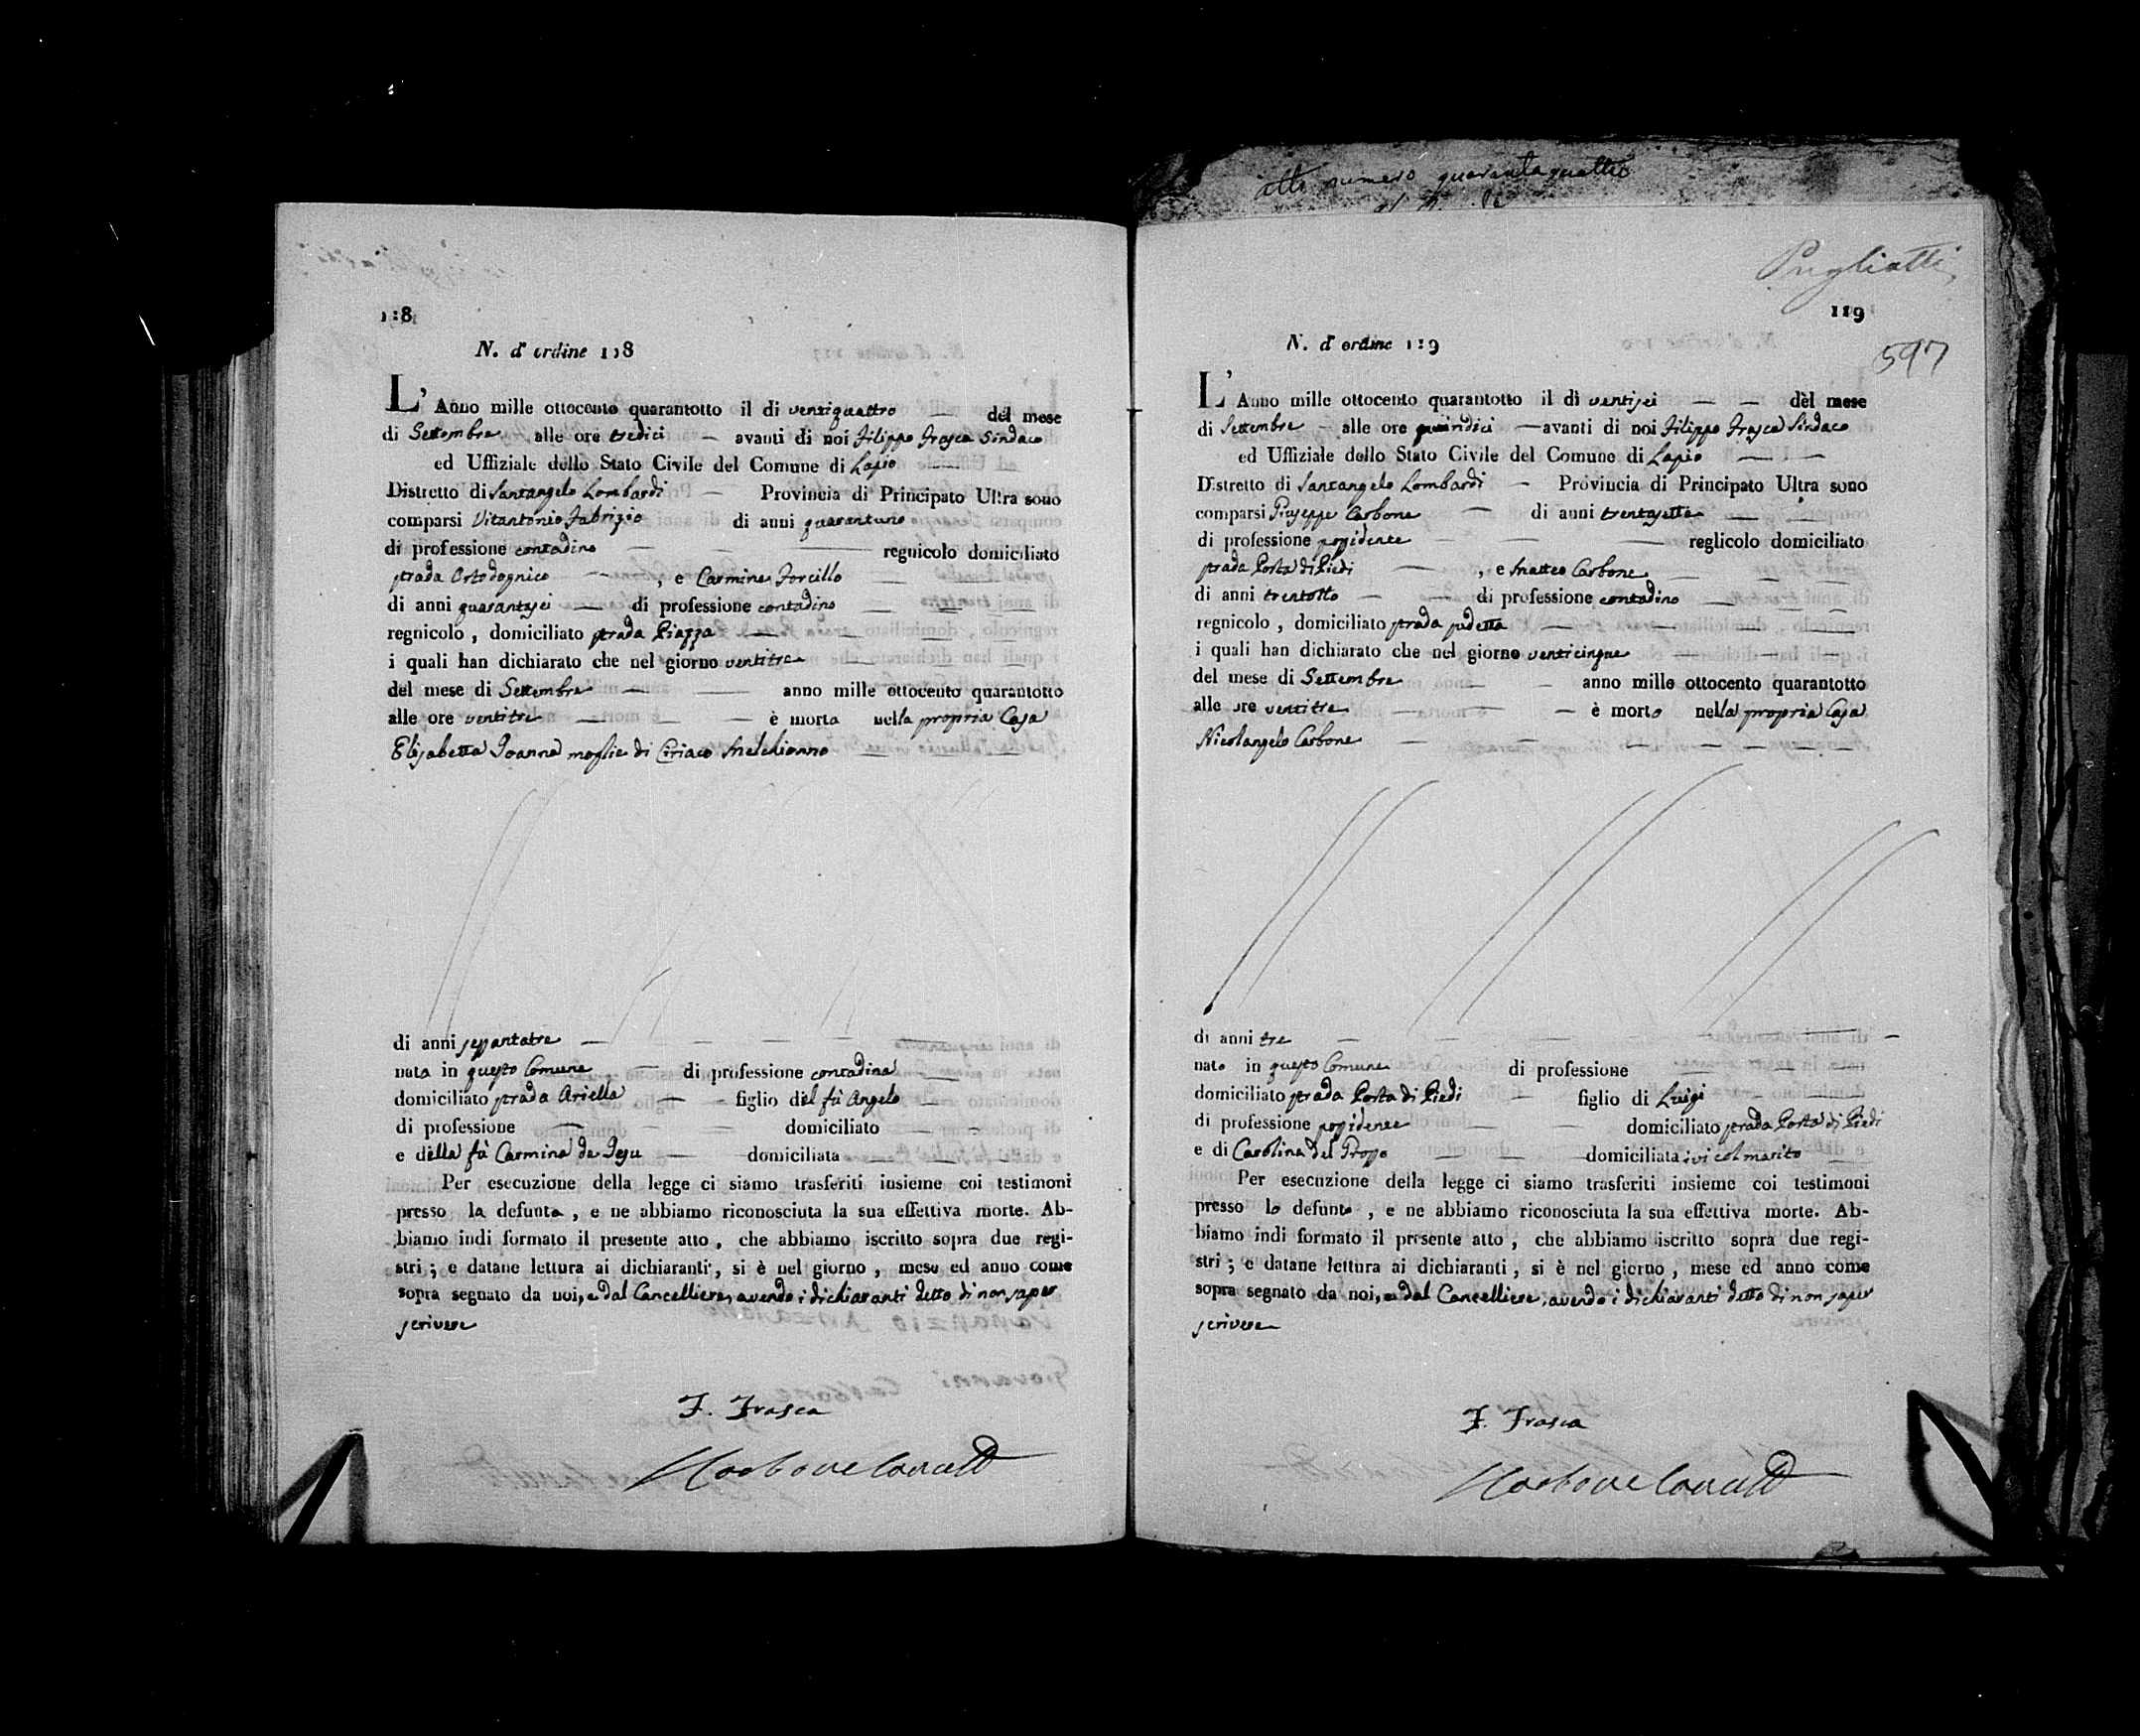 atto numero quarantaquattro
118
N. d' ordine 118
L' Anno mille ottocento quarantotto il di ventiquattro del mese
di Settembre alle ore tredici avanti di noi Filippo Frasca Sindaco
ed Uffiziale dello Stato Civile del Comune di Lapio
Distretto di Santangelo Lombardi Provincia di Principato Ultra sono
comparsi Vitantonio Fabrizio di anni quarantuno
di professione contadino regnicolo domiciliato
strada Ortodognico , e Carmine Forcillo
di anni quarantasei di professione contadino
regnicolo , domiciliato strada Piazza
i quali han dichiarato che nel giorno ventitre
del mese di Settembre anno mille ottocento quarantotto
alle ore ventitre è morta nella propria Casa
Elisabetta Joanna moglie di Ciriaco Melchionno
di anni settantatre
nata in questo Comune di professione contadina
domiciliato strada Ariella figlio del fù Angelo
di professione domiciliato
e della fù Carmina de Jesu domiciliata
Per esecuzione della legge ci siamo trasferiti insieme coi testimoni
presso la defunta , e ne abbiamo riconosciuta la sua effettiva morte. Ab-
biamo indi formato il presente atto , che abbiamo iscritto sopra due regi-
stri ; e datane lettura ai dichiaranti , si è nel giorno , mese ed anno come
sopra segnato da noi, e dal Cancelliere, avendo i dichiaranti detto di non saper
scrivere
F. Frasca
Carbone
Pugliatti
119
597
N. d' ordine 119
L' Anno mille ottocento quarantotto il dì ventisei del mese
di Settembre alle ore quindici avanti di noi Filippo Frasca Sindaco
ed Uffiziale dello Stato Civile del Comune di Lapio
Distretto di Santangelo Lombardi Provincia di Principato Ultra sono
comparsi Giuseppe Carbone di anni trentasette
di professione possidente reglicolo domiciliato
strada Porta di Piedi , e Matteo Carbone
di anni trentotto di professione contadino
regnicolo , domiciliato strada
i quali han dichiarato che nel giorno venticinque
del mese di Settembre anno mille ottocento quarantotto
alle ore ventitre è morto nella propria Casa
Nicolangelo Carbone
di anni tre
nato in questo Comune di professione
domiciliato strada Porta di Piedi figlio di Luigi
di professione possidente domiciliato strada Porta di Piedi
e di Carolina del Grosso domiciliata ivi col marito
Per esecuzione della legge ci siamo trasferiti insieme coi testimoni
presso lo defunto , e ne abbiamo riconosciuta la sua effettiva morte. Ab-
biamo indi formato il presente atto , che abbiamo iscritto sopra due regi-
stri ; e datane lettura ai dichiaranti , si è nel giorno , mese ed anno come
sopra segnato da noi, e dal Cancelliere, avendo i dichiaranti detto di non saper
scrivere
F. Frasca
Carbone